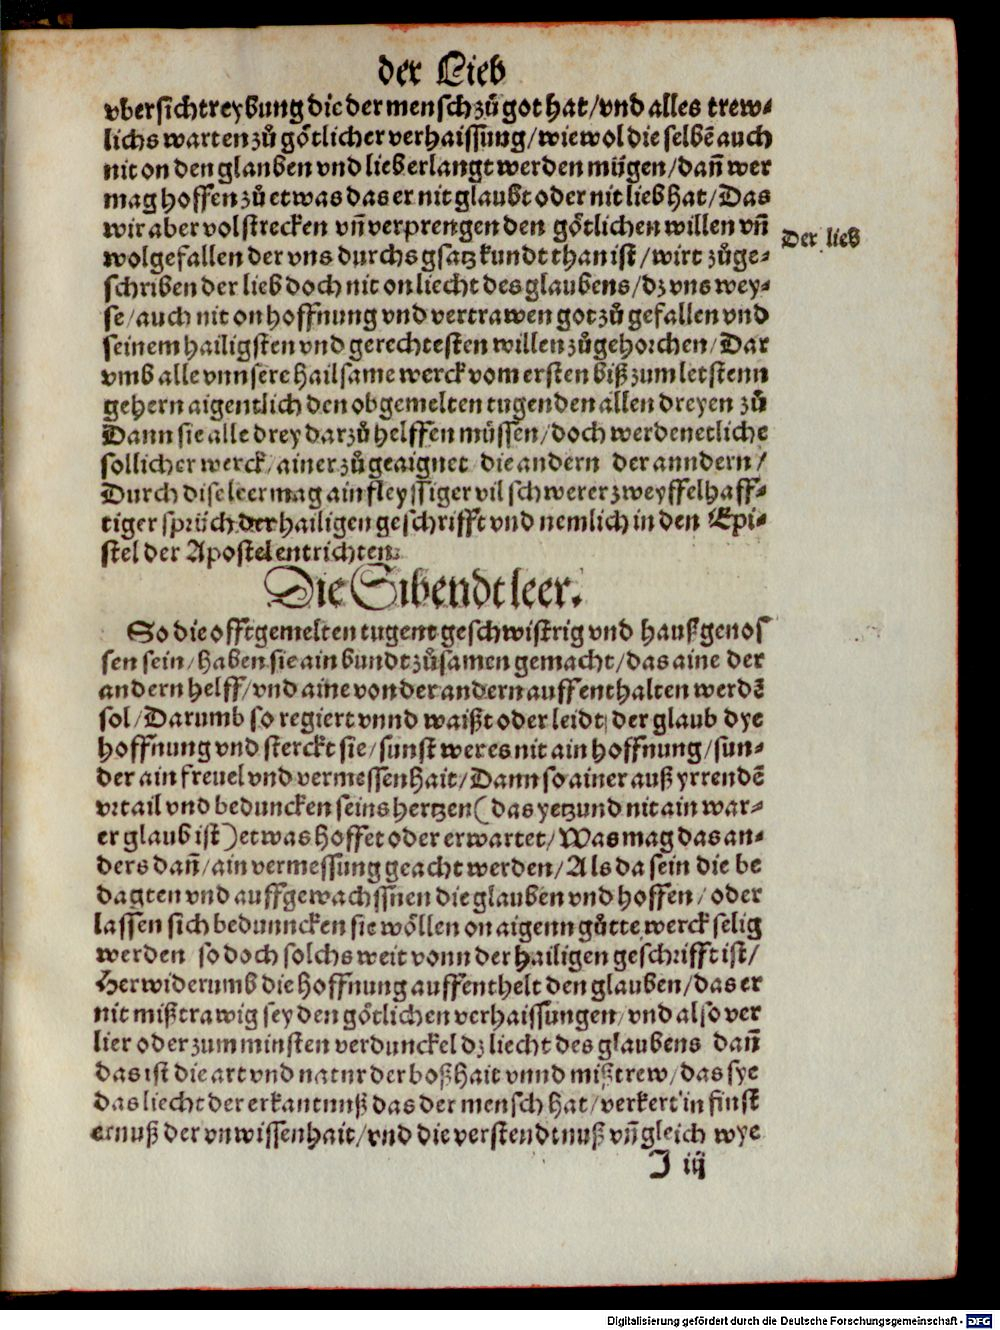 der Lieb
vbersichtreybung die der mensch zů got hat/vnd alles trew-
lichs warten zů götlicher verhaissung/wiewol die selbẽ auch
nit on den glauben vnd lieb erlangt werden mügen/dañ wer
mag hoffen zů etwas das er nit glaubt oder nit lieb hat/Das
wir aber volstrecken vñ verprengen den götlichen willen vñ
Der lieb
wolgefallen der vns durchs gsatz kundt than ist/wirt zůge-
schriben der lieb doch nit on liecht des glaubens/dz vns wey-
se/auch nit on hoffnung vnd vertrawen got zů gefallen vnd
seinem hailigsten vnd gerechtesten willen zů gehorchen/Dar
vmb alle vnnsere hailsame werck vom ersten biß zum letstenn
gehern aigentlich den obgemelten tugenden allen dreyen zů
Dann sie alle drey darzů helffen müssen/doch werden etliche
sollicher werck/ainer zůgeaignet/die andern der anndern/
Durch dise leer mag ain fleyssiger vil schwerer zweyffelhaff-
tiger sprüch der hailigen geschrifft vnd nemlich in den Epi-
stel der Apostel entrichten.
Die Sibendt leer.
So die offtgemelten tugent geschwistrig vnd haußgenos
sen sein/haben sie ain bundt zůsamen gemacht/das aine der
andern helff/vnd aine von der andern auffenthalten werdẽ
sol/Darumb so regiert vnnd waißt oder leidt der glaub dye
hoffnung vnd sterckt sie/sunst wer es nit ain hoffnung/sun-
der ain freuel vnd vermessenhait/Dann so ainer auß yrrendẽ
vrtail vnd beduncken seins hertzen(das yetzund nit ain war-
er glaub ist)etwas hoffet oder erwartet/Was mag das an-
ders dañ/ain vermessung geacht werden/Als da sein die be
dagten vnd auffgewachssnen die glauben vnd hoffen/oder
lassen sich bedunncken sie wöllen on aigenn gůtte werck selig
werden so doch solchs weit vonn der hailigen geschrifft ist/
Herwiderumb die hoffnung auffenthelt den glauben/das er
nit mißtrawig sey den götlichen verhaissungen/vnd also ver
lier oder zum minsten verdunckel dz liecht des glaubens dañ
das ist die art vnd natur der boßhait vnnd mißtrew/das sye
das liecht der erkantnuß das der mensch hat/verkert in finst
ernuß der vnwissenhait/vnd die verstendtnuß vñ gleich wye
J iij
Digitalisierung gefördert durch die Deutsche Forschungsgemeinschaft - DFG